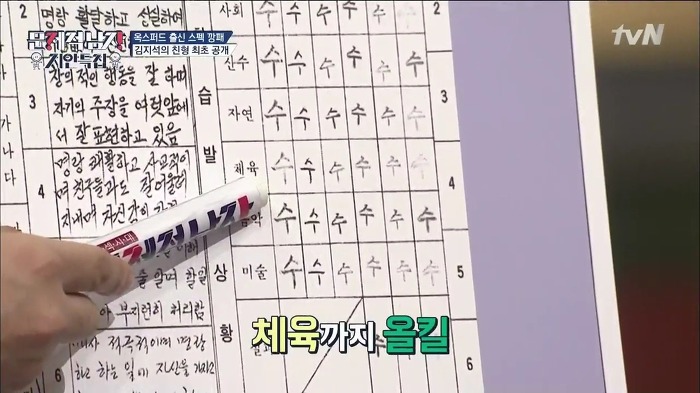 문제적남자
지인특집
옥스퍼드 출신 스펙 깡패
김지석의 친형 최초 공개
tvN
2
명랑 활달하고 성실하여
3
창의적인 행동을 잘 하며
자기의 주장을 여럿앞에
서 잘 표현하고 있음
4
명랑 쾌활하고 사교적이
며 친구들과도 잘 어울려
지내며
술 알며 할일
부지런히 처리함
적극적이며 명랑
6
하고 하는 일에 자신을 가지고
습
발
상
황
사회 수 수 수 수 수 수
산수 수 수 수 수 수 수
자연 수 수 수 수 수 수
체육 수 수 수 수 수 수
수 수 수 수 수 수
미술 수 수 수 수 수 수
2
3
4
5
6
뇌섹시대
체육까지 올킬